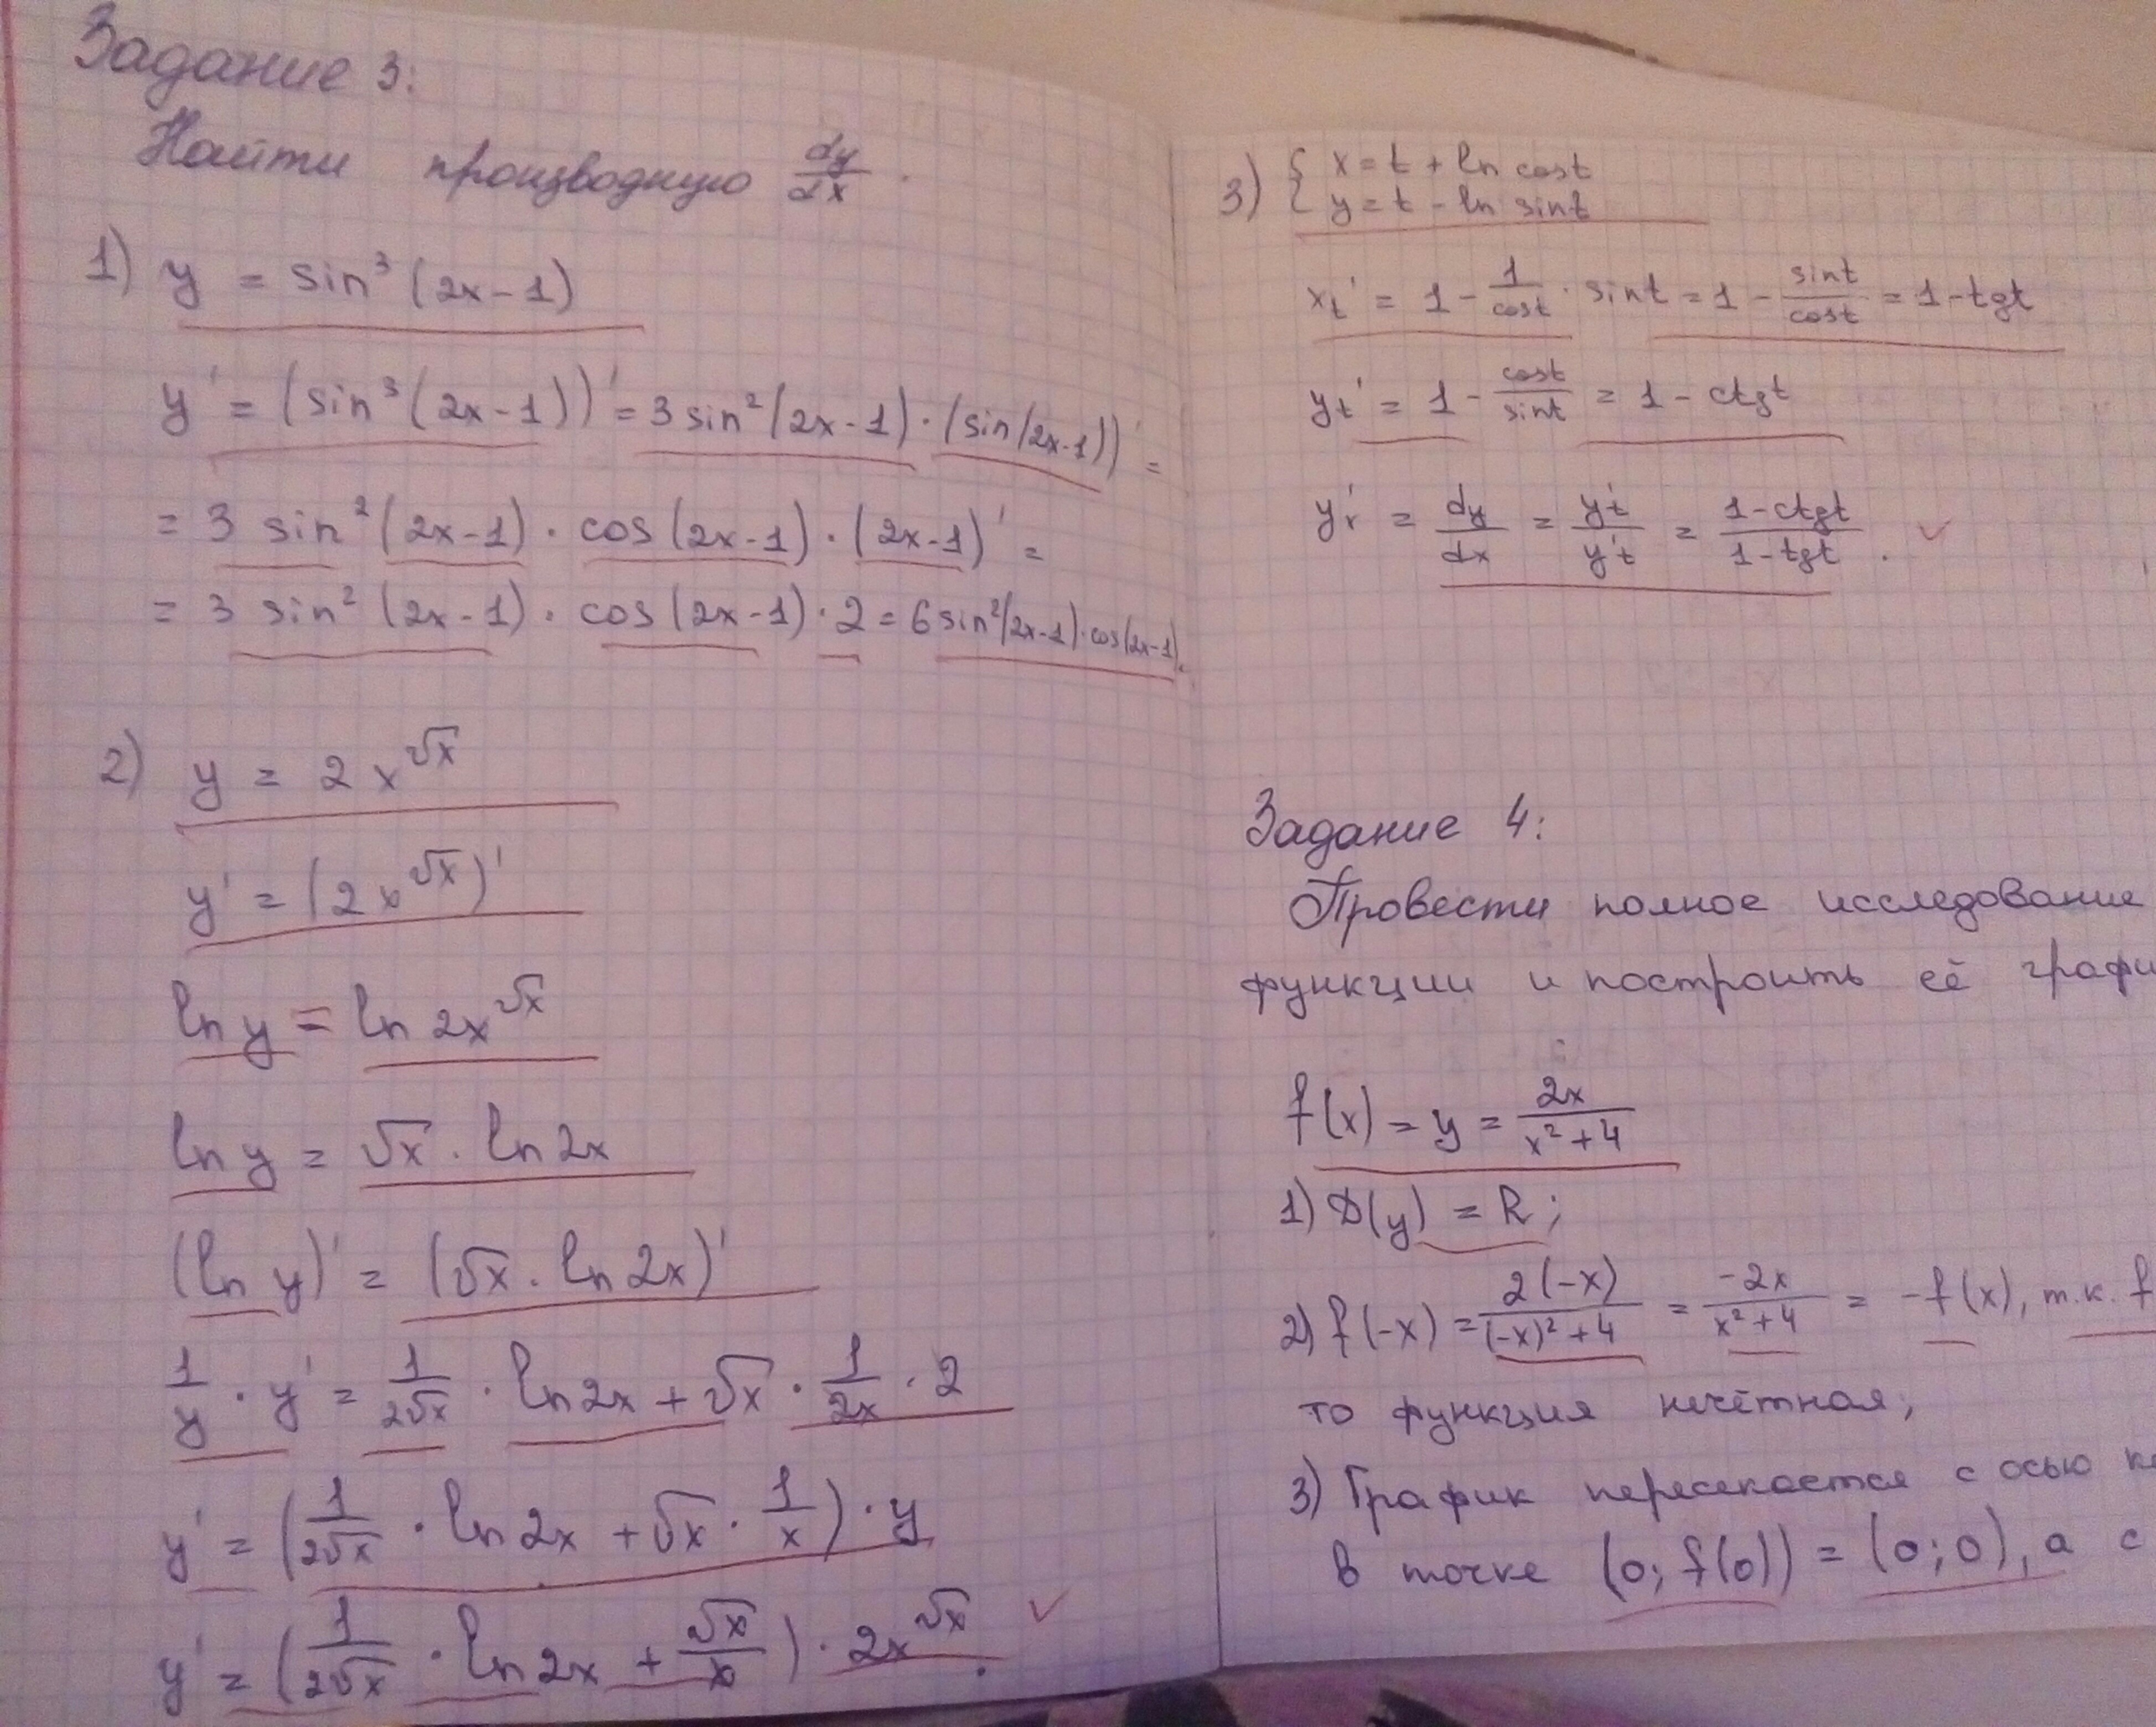 Задание 3:
Найти производную dy/dx.
1) y = sin³(2x-1)
y' = (sin³(2x-1))' = 3sin²(2x-1)·(sin(2x-1))' =
= 3 sin²(2x-1)·cos(2x-1)·(2x-1)' =
= 3 sin²(2x-1)·cos(2x-1)·2 = 6sin²(2x-1)·cos(2x-1).
2) y = 2x^√x
y' = (2x^√x)'
ln y = ln 2x^√x
ln y = √x · ln 2x
(ln y)' = (√x · ln 2x)'
1/y · y' = 1/(2√x) · ln 2x + √x · 1/(2x) · 2
y' = (1/(2√x) · ln 2x + √x · 1/x) · y
y' = (1/(2√x) · ln 2x + √x/x) · 2x^√x.
3) { x = t + ln cost
y = t - ln sint
x_t' = 1 - 1/cost · sint = 1 - sint/cost = 1 - tgt
y_t' = 1 - cost/sint = 1 - ctgt
y'ₓ = dy/dx = y't/y't = (1-ctgt)/(1-tgt).
Задание 4:
Провести полное исследование
функции и построить её графи
f(x) = y = 2x/(x²+4)
1) D(y) = R;
2) f(-x) = 2(-x)/((-x)²+4) = -2x/(x²+4) = -f(x), т.к. f
то функция нечётная;
3) График пересекается с осью
в точке (0; f(0)) = (0; 0), а с